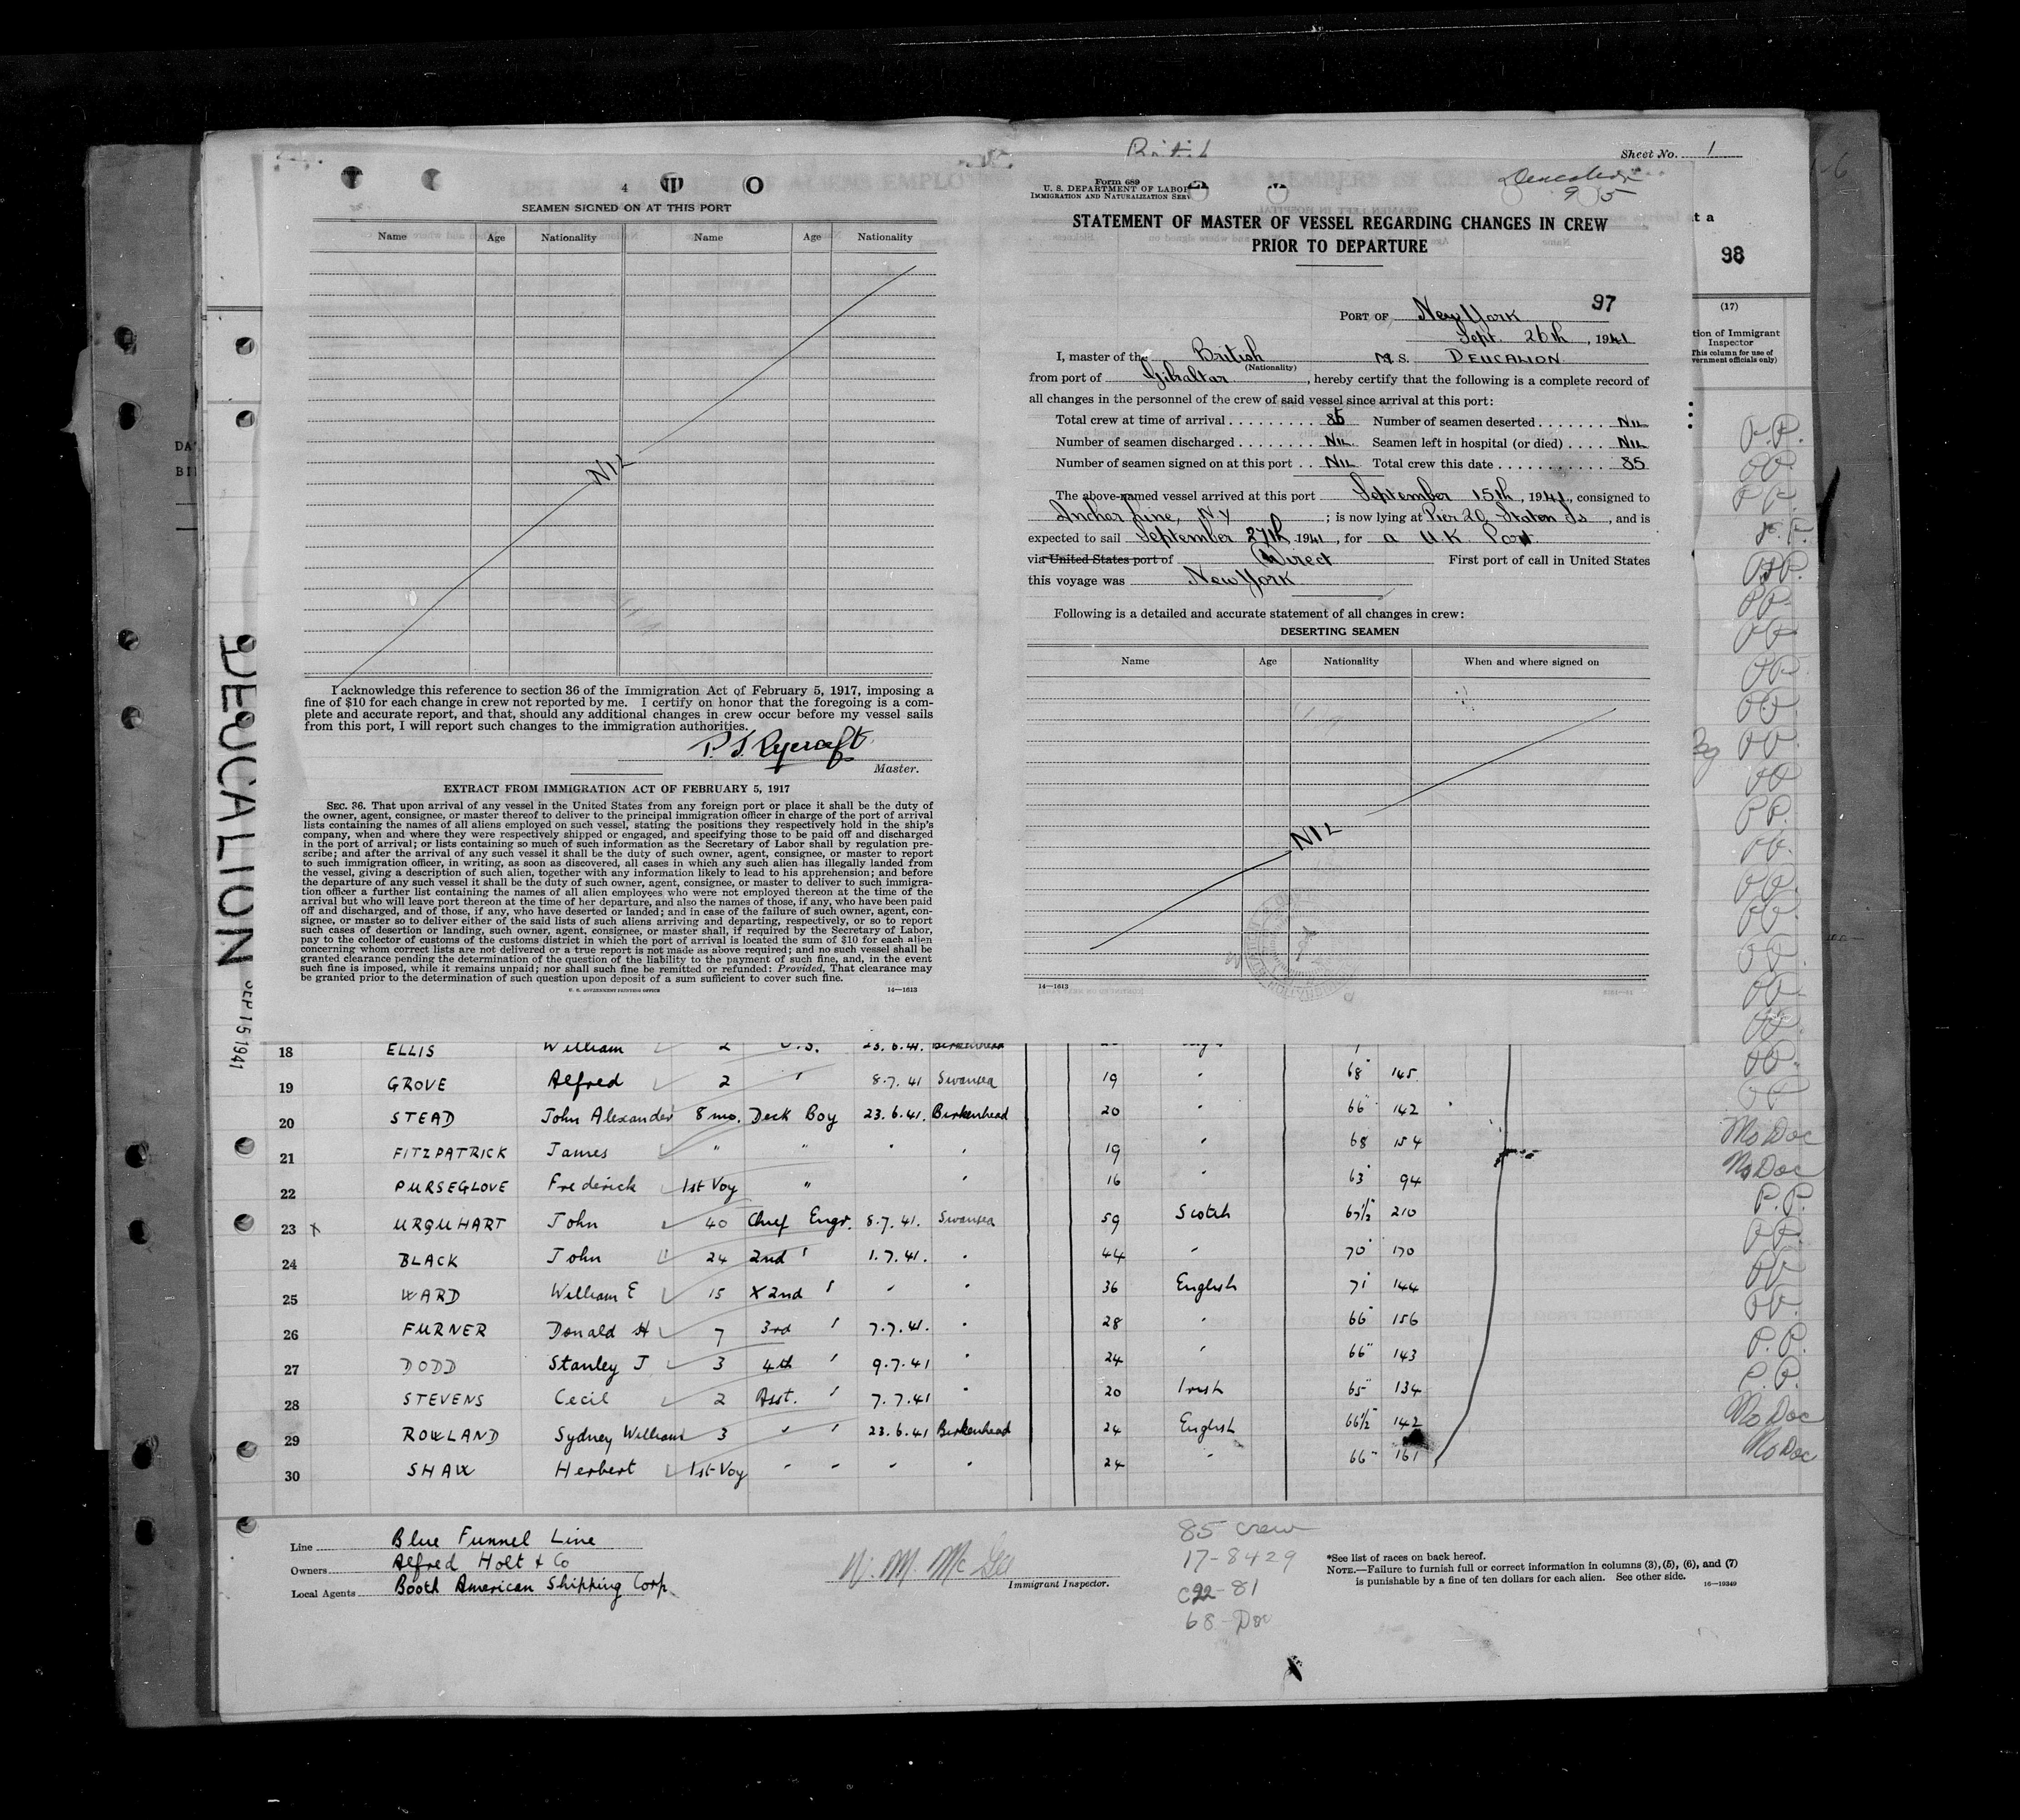 British
Sheet No. 1
4
SEAMEN SIGNED ON AT THIS PORT
Name Age Nationality Name Age Nationality
NIL
I acknowledge this reference to section 36 of the Immigration Act of February 5, 1917, imposing a
fine of $10 for each change in crew not reported by me. I certify on honor that the foregoing is a com-
plete and accurate report, and that, should any additional changes in crew occur before my vessel sails
from this port, I will report such changes to the immigration authorities.
P. J. Rycroft
Master.
EXTRACT FROM IMMIGRATION ACT OF FEBRUARY 5, 1917
SEC. 36. That upon arrival of any vessel in the United States from any foreign port or place it shall be the duty of
the owner, agent, consignee, or master thereof to deliver to the principal immigration officer in charge of the port of arrival
lists containing the names of all aliens employed on such vessel, stating the positions they respectively hold in the ship's
company, when and where they were respectively shipped or engaged, and specifying those to be paid off and discharged
in the port of arrival; or lists containing so much of such information as the Secretary of Labor shall by regulation pre-
scribe; and after the arrival of any such vessel it shall be the duty of such owner, agent, consignee, or master to report
to such immigration officer, in writing, as soon as discovered, all cases in which any such alien has illegally landed from
the vessel, giving a description of such alien, together with any information likely to lead to his apprehension; and before
the departure of any such vessel it shall be the duty of such owner, agent, consignee, or master to deliver to such immigra-
tion officer a further list containing the names of all alien employees who were not employed thereon at the time of the
arrival but who will leave port thereon at the time of her departure, and also the names of those, if any, who have been paid
off and discharged, and of those, if any, who have deserted or landed; and in case of the failure of such owner, agent, con-
signee, or master so to deliver either of the said lists of such aliens arriving and departing, respectively, or so to report
such cases of desertion or landing, such owner, agent, consignee, or master shall, if required by the Secretary of Labor,
pay to the collector of customs of the customs district in which the port of arrival is located the sum of $10 for each alien
concerning whom correct lists are not delivered or a true report is not made as above required; and no such vessel shall be
granted clearance pending the determination of the question of the liability to the payment of such fine, and, in the event
such fine is imposed, while it remains unpaid; nor shall such fine be remitted or refunded: Provided, That clearance may
be granted prior to the determination of such question upon deposit of a sum sufficient to cover such fine.
U. S. GOVERNMENT PRINTING OFFICE 14—1613
Form 689
U. S. DEPARTMENT OF LABOR
IMMIGRATION AND NATURALIZATION SERV
Deucalion
95
STATEMENT OF MASTER OF VESSEL REGARDING CHANGES IN CREW
PRIOR TO DEPARTURE
97
PORT OF New York
Sept. 26th, 1941
I, master of the British M S. DEUCALION
(Nationality)
from port of Gibraltar, hereby certify that the following is a complete record of
all changes in the personnel of the crew of said vessel since arrival at this port:
Total crew at time of arrival 85 Number of seamen deserted NIL
Number of seamen discharged NIL Seamen left in hospital (or died) NIL
Number of seamen signed on at this port NIL Total crew this date 85
The above-named vessel arrived at this port September 15th, 1941, consigned to
Anchor Line, NY; is now lying at Pier 20 Staten Is, and is
expected to sail September 27th 1941, for a UK Port
via United States port of Direct First port of call in United States
this voyage was New York
Following is a detailed and accurate statement of all changes in crew:
DESERTING SEAMEN
Name Age Nationality When and where signed on
NIL
14—1613
t a
98
(17)
tion of Immigrant
Inspector
(This column for use of
vernment officials only)
DEUCALION
SEP 15 1941
18 ELLIS William 2 23.6.41. Birkenhead
19 GROVE Alfred 2 " 8.7.41 Swansea 19 " 68 145
20 STEAD John Alexander 8 mo. Deck Boy 23.6.41. Birkenhead 20 " 66" 142
21 FITZPATRICK James " " " " 19 " 68 154 No Doc
22 PURSEGLOVE Frederick 1st Voy " " 16 " 63 94 No Doc
23 x URQUHART John 40 Chief Engr. 8.7.41. Swansea 59 Scotch 67½ 210 P.P.
24 BLACK John 24 2nd " 1.7.41. " 44 " 70" 170
25 WARD William E 15 X2nd " " " 36 English 71 144
26 FURNER Donald H 7 3rd " 7.7.41. " 28 " 66 156
27 DODD Stanley J 3 4th " 9.7.41 " 24 " 66" 143 P.P.
28 STEVENS Cecil 2 Asst. " 7.7.41 " 20 Irish 65" 134 P.P.
29 ROWLAND Sydney William 3 " " 23.6.41 Birkenhead 24 English 66½ 142 No Doc
30 SHAW Herbert 1st Voy " " " " 24 " 66" 161 No Doc
Line Blue Funnel Line
Owners Alfred Holt & Co
Local Agents Booth American Shipping Corp.
W. M. McGee
Immigrant Inspector.
85 crew
17-8429
C22-81
68-Doc
*See list of races on back hereof.
NOTE.—Failure to furnish full or correct information in columns (3), (5), (6), and (7)
is punishable by a fine of ten dollars for each alien. See other side.
16—19349